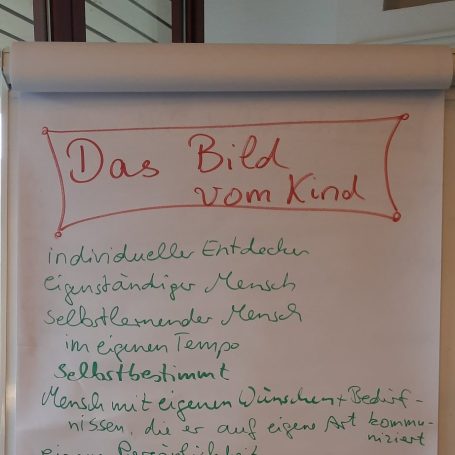 Das Bild
vom Kind
individueller Entdecker
eigenständiger Mensch
selbstlernender Mensch
im eigenen Tempo
selbstbestimmt
Mensch mit eigenen Wünschen + Bedürf-
nissen, die er auf eigene Art kommu-
niziert
eigene Persönlichkeit